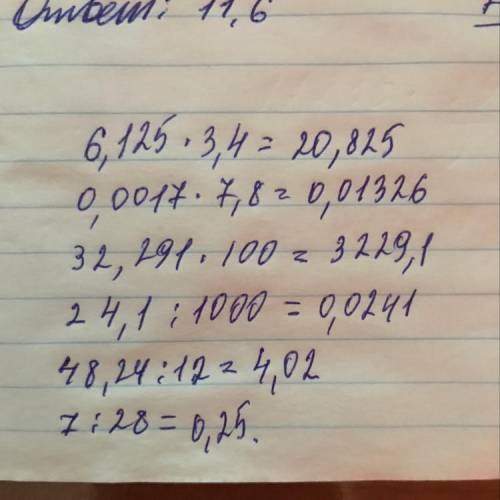 Ответ: 11,6
6,125 · 3,4 = 20,825
0,0017 · 7,8 = 0,01326
32,291 · 100 = 3229,1
24,1 : 1000 = 0,0241
48,24 : 12 = 4,02
7 : 28 = 0,25.